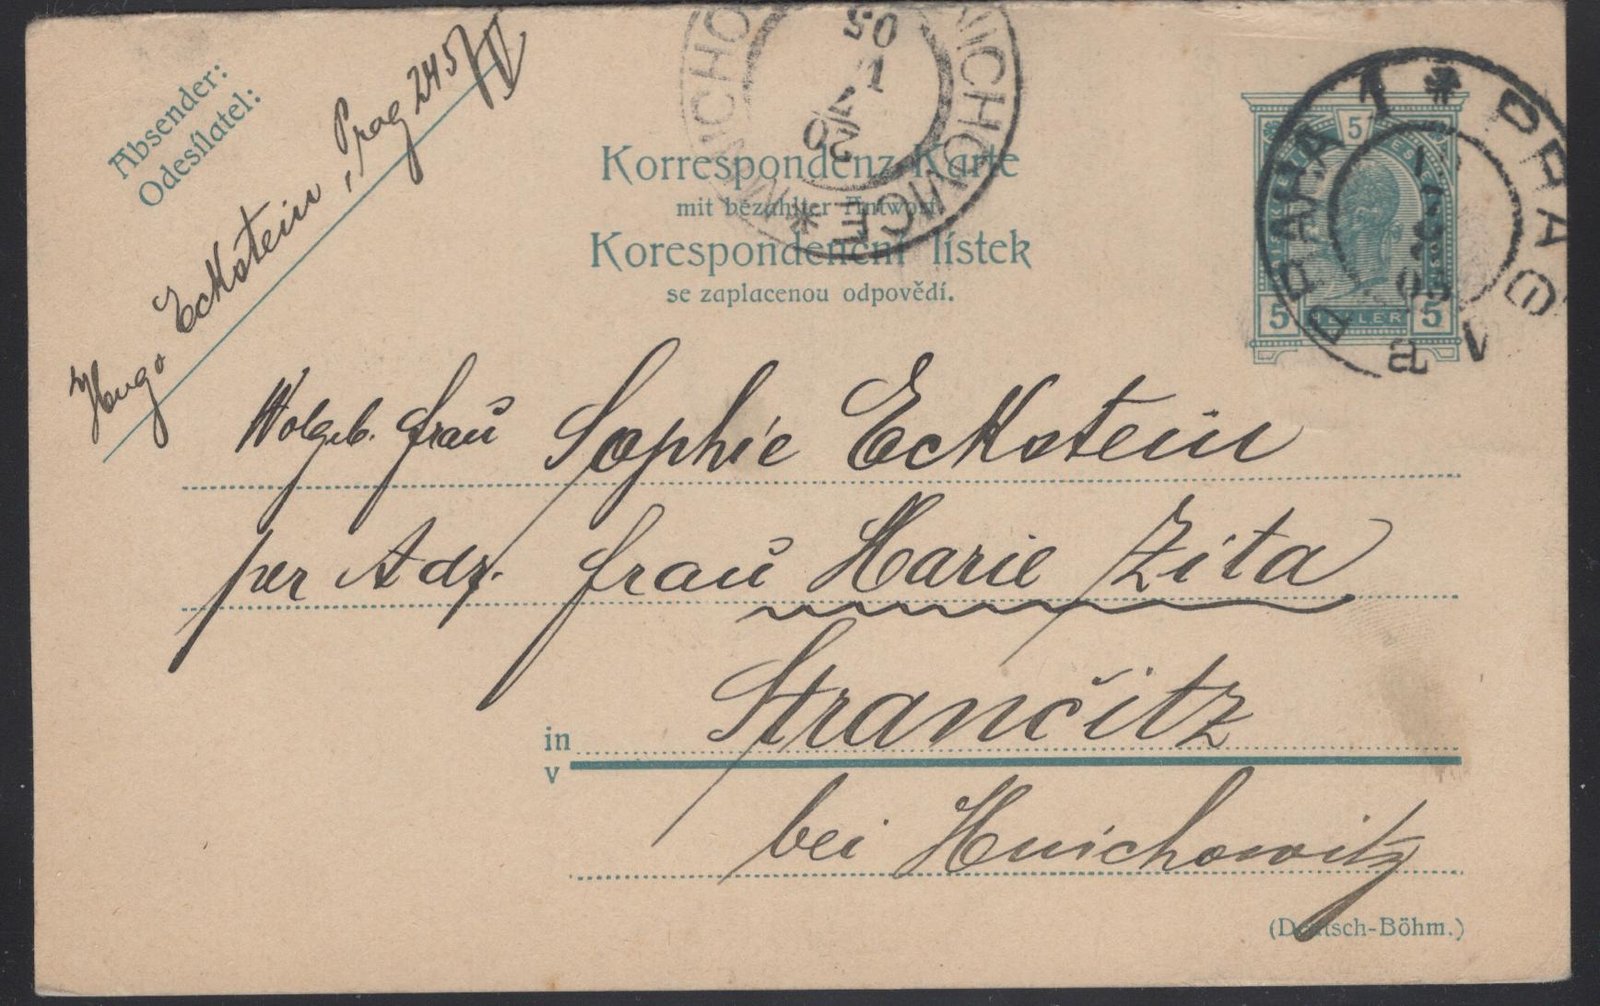 Absender:
Odesílatel:
Hugo Eckstein, Prag 245/II
Korrespondenz-Karte
mit bezahlter Antwort.
Korespondenční lístek
se zaplacenou odpovědí.
MNICHOVICE * MNICHO
20
7
05
PRAHA 1 * PRAG 1
a
5
5 HELLER 5
Wolgeb. Frau Sophie Eckstein
per Adr. Frau Marie Zita
in Strančitz
v
bei Mnichowitz
(Deutsch-Böhm.)